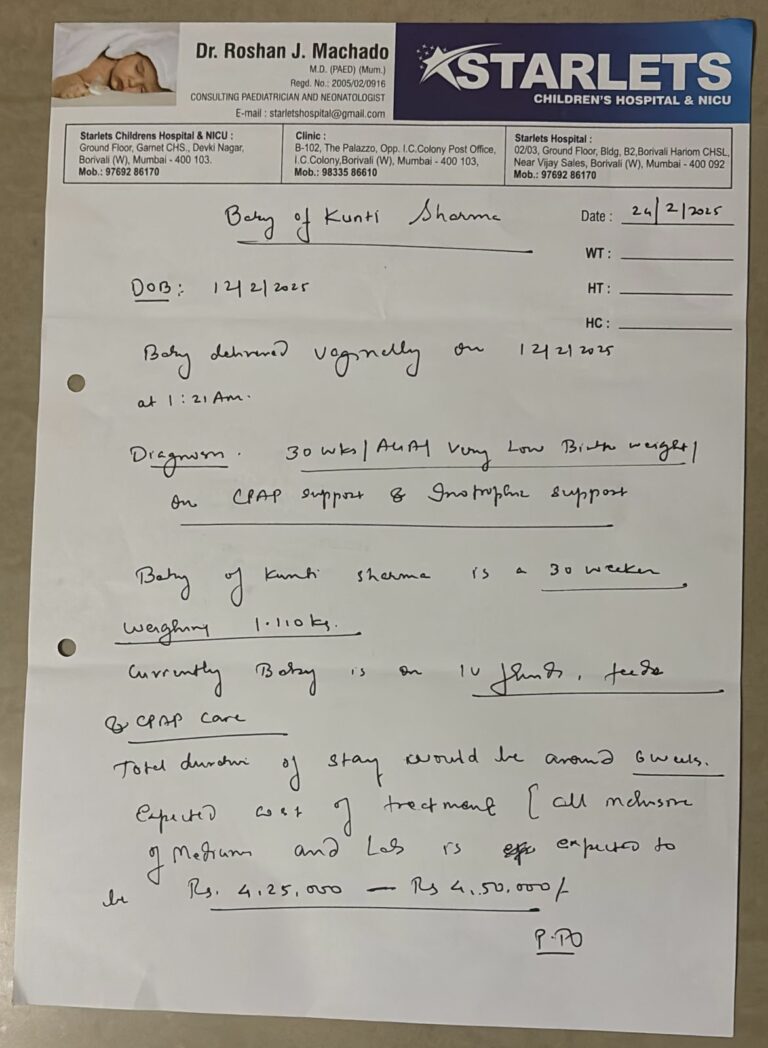 Dr. Roshan J. Machado
M.D. (PAED) (Mum.)
Regd. No.: 2005/02/0916
CONSULTING PAEDIATRICIAN AND NEONATOLOGIST
E-mail : starletshospital@gmail.com
STARLETS
CHILDREN'S HOSPITAL & NICU
Starlets Childrens Hospital & NICU :
Ground Floor, Garnet CHS., Devki Nagar,
Borivali (W), Mumbai - 400 103.
Mob.: 97692 86170
Clinic :
B-102, The Palazzo, Opp. I.C.Colony Post Office,
I.C.Colony,Borivali (W), Mumbai - 400 103,
Mob.: 98335 86610
Starlets Hospital :
02/03, Ground Floor, Bldg, B2,Borivali Hariom CHSL,
Near Vijay Sales, Borivali (W), Mumbai - 400 092
Mob.: 97692 86170
Baby of Kunti Sharma
Date : 24/2/2025
WT :
HT :
HC :
DOB : 12/2/2025
Baby delivered vaginally on 12/2/2025
at 1:21 Am.
Diagnosis . 30 wks / AGA / Very Low Birth weight /
on CPAP support & Inotropic support
Baby of Kunti Sharma is a 30 weeker
weighing 1.110 kg.
Currently Baby is on IV fluids, feeds
& CPAP care
Total duration of stay would be around 6 weeks.
Expected cost of treatment [ all inclusive
of Medicines and Lab is expected to
be Rs. 4,25,000 — Rs 4,50,000/
P.TO